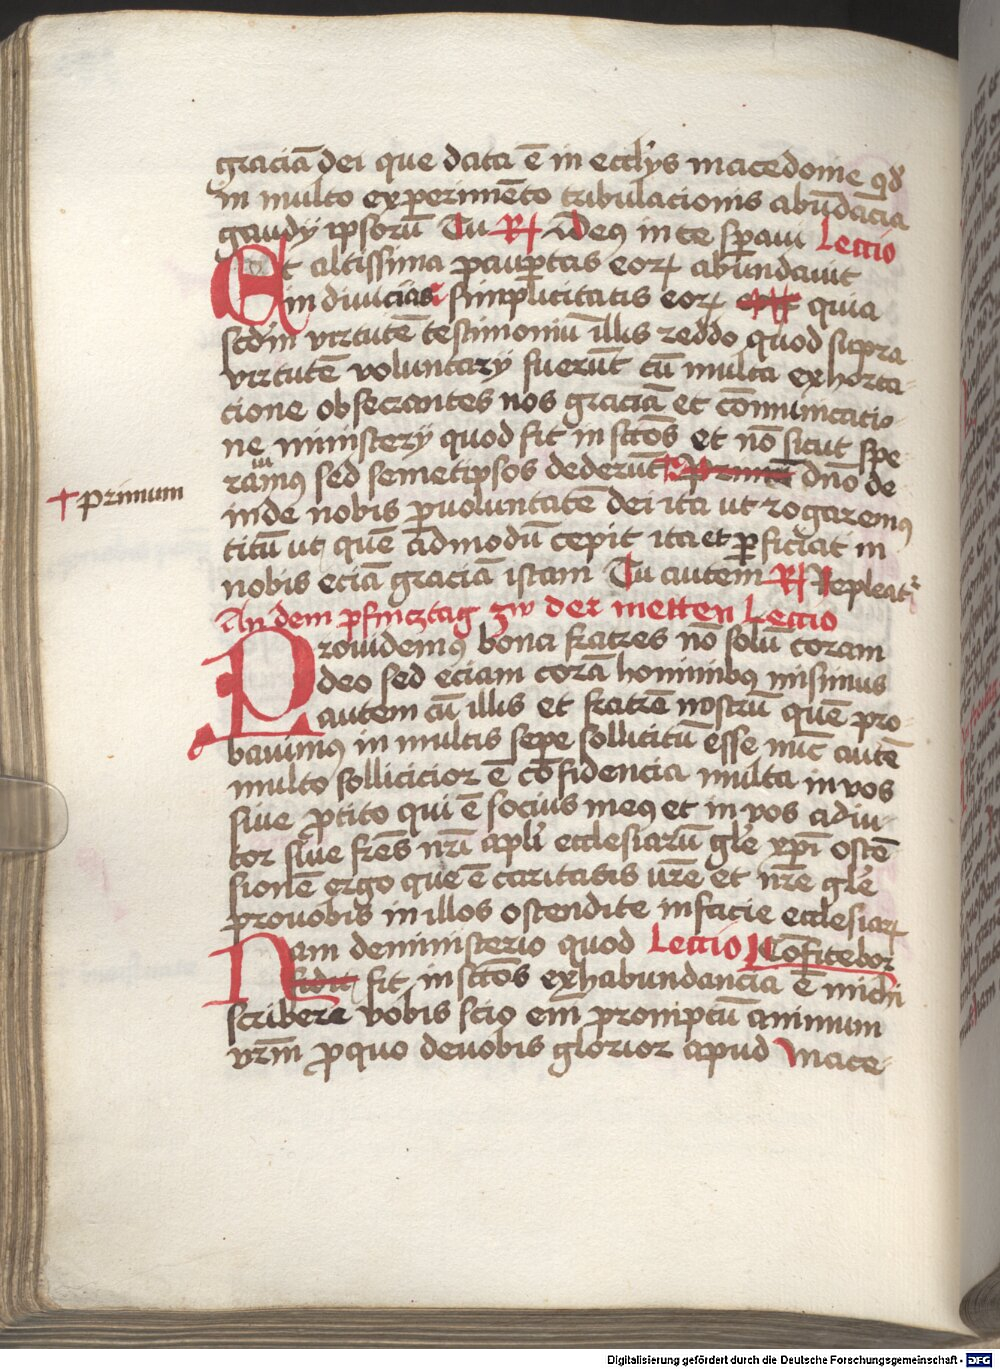 graciā dei que data ē in eccl'ys macedonie qd'
in multo experimēto tribulacionis abūdācia
gaudy ipsorū Tu R Deꝯ in te sꝑaui Lectio
Et altissima paupertas eorꝝ abundauit
in diuicias simplicitatis eorꝝ quia
scd'm virtutē testimoniū illis reddo quod supra
virtutē voluntary fuerūt cū multa exhorta-
cione obsecrantes nos graciā et cōmunicatio-
ne ministery quod fit in sctōs et nō sicut spe
rauimꝯ sed semetipsos dederūt dnō de
+ primum
inde nobis p voluntatē dei ita ut rogaremꝯ
titū ut quē admodū cepit ita et ꝑficiat in
nobis eciā graciā istam Tu autem R Repleatr
An dem pfincztag zw der metten Lectio
Prouidemꝯ bona fratres nō solū coram
deo sed eciam corā hominibꝯ misimus
autem cū illis et fratrē nostrū quē pro-
bauimꝯ in multis sepe sollicitū esse nūc autē
multo sollicicior ē cōfidencia multa in vos
siue p tito qui ē socius meꝯ et in vos adiu-
tor siue frēs nr̄i apl'i ecclesiarū gl'e xp̄i ostē
sionē ergo que ē caritatis vr̄e et nr̄e gl'e
pro vobis in illos ostendite in facie ecclesiarꝝ
Nam de ministerio quod Lectio II Cōfitebor
fit in sctōs ex habundancia ē michi
scribere vobis scio em̄ promptū animum
vr̄m pro quo de vobis glorior apud Mace-
Digitalisierung gefördert durch die Deutsche Forschungsgemeinschaft - DFG